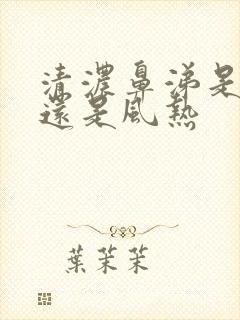 清濃鼻涕是
還是風熱
葉茉茉